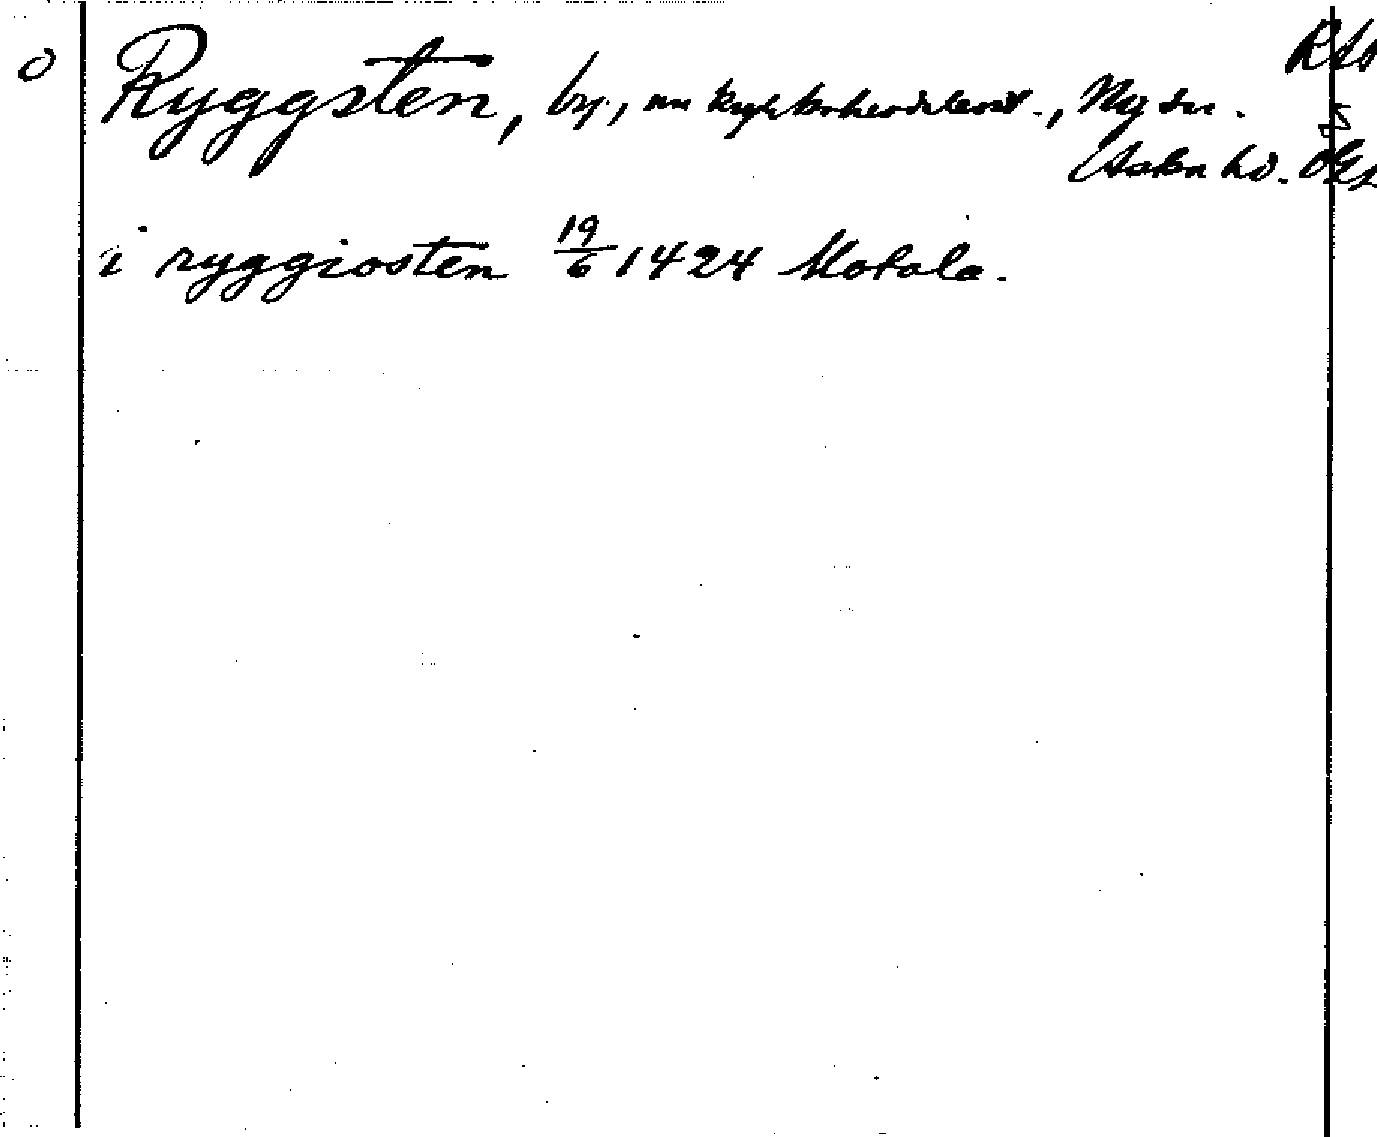 o Ryggsten, by, nu kyrkoherdebost., Ny sn. RAp
Aska hd. Ög
i ryggiosten 19/6 1424 Motala.